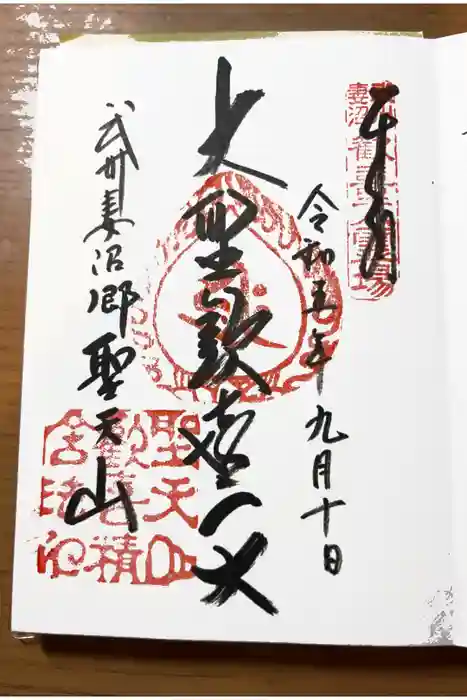 奉拝
武州妻沼 歓喜天霊場
令和五年九月十日
大聖歓喜天
武州妻沼郷 聖天山
聖天山歓喜積舎法印